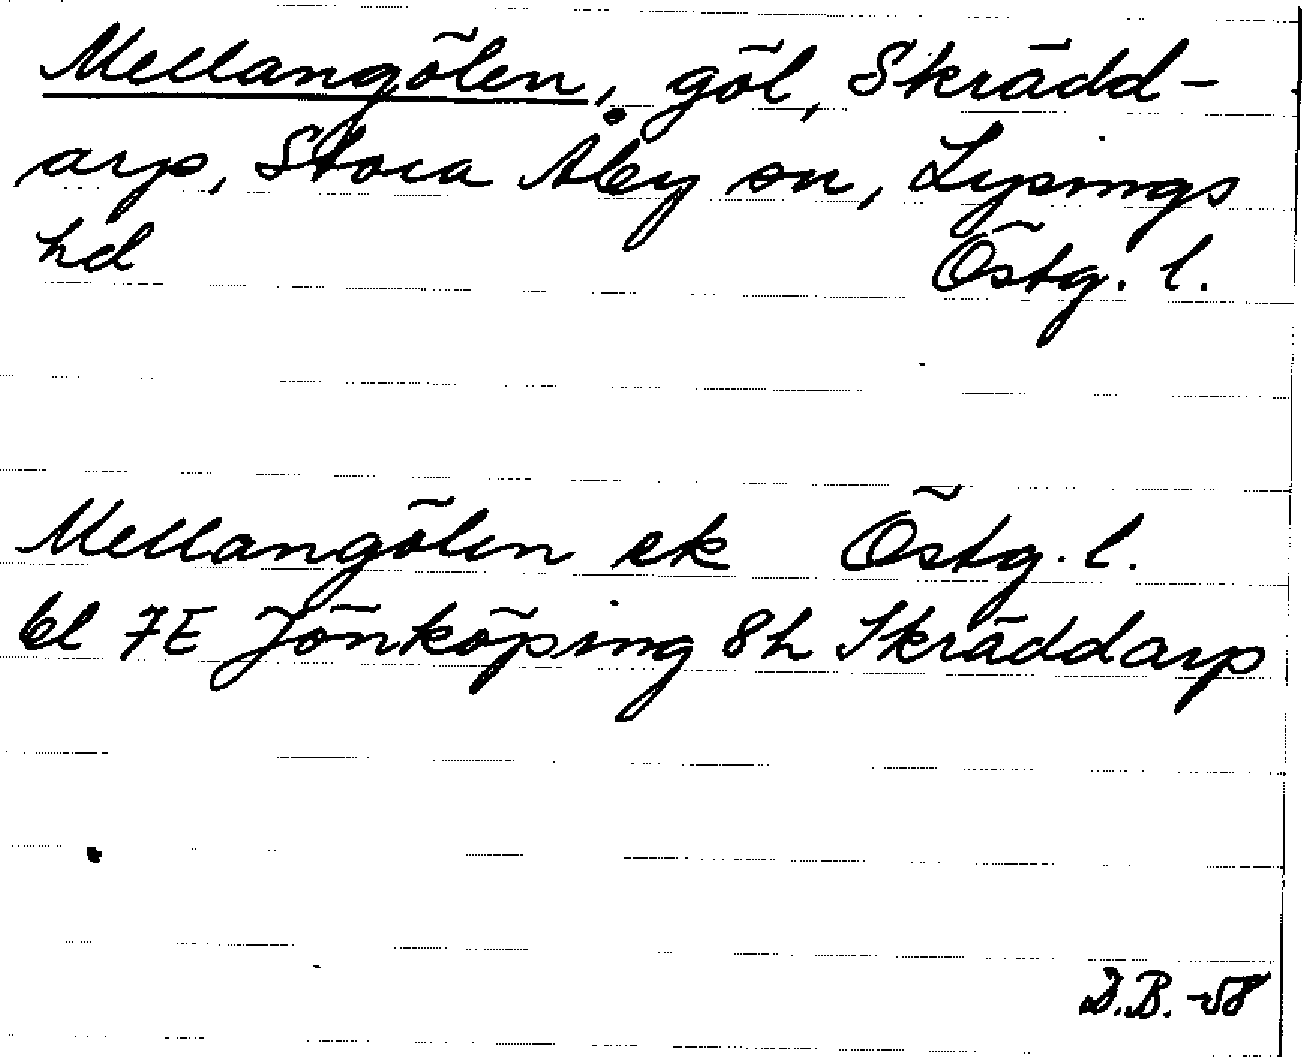 Mellangölen, göl, Skrädd-
arp, Stora Åby sn, Lysings
hd Östg. l.
Mellangölen ek Östg. l.
bl 7E Jönköping 8h Skräddarp
D.B. -58